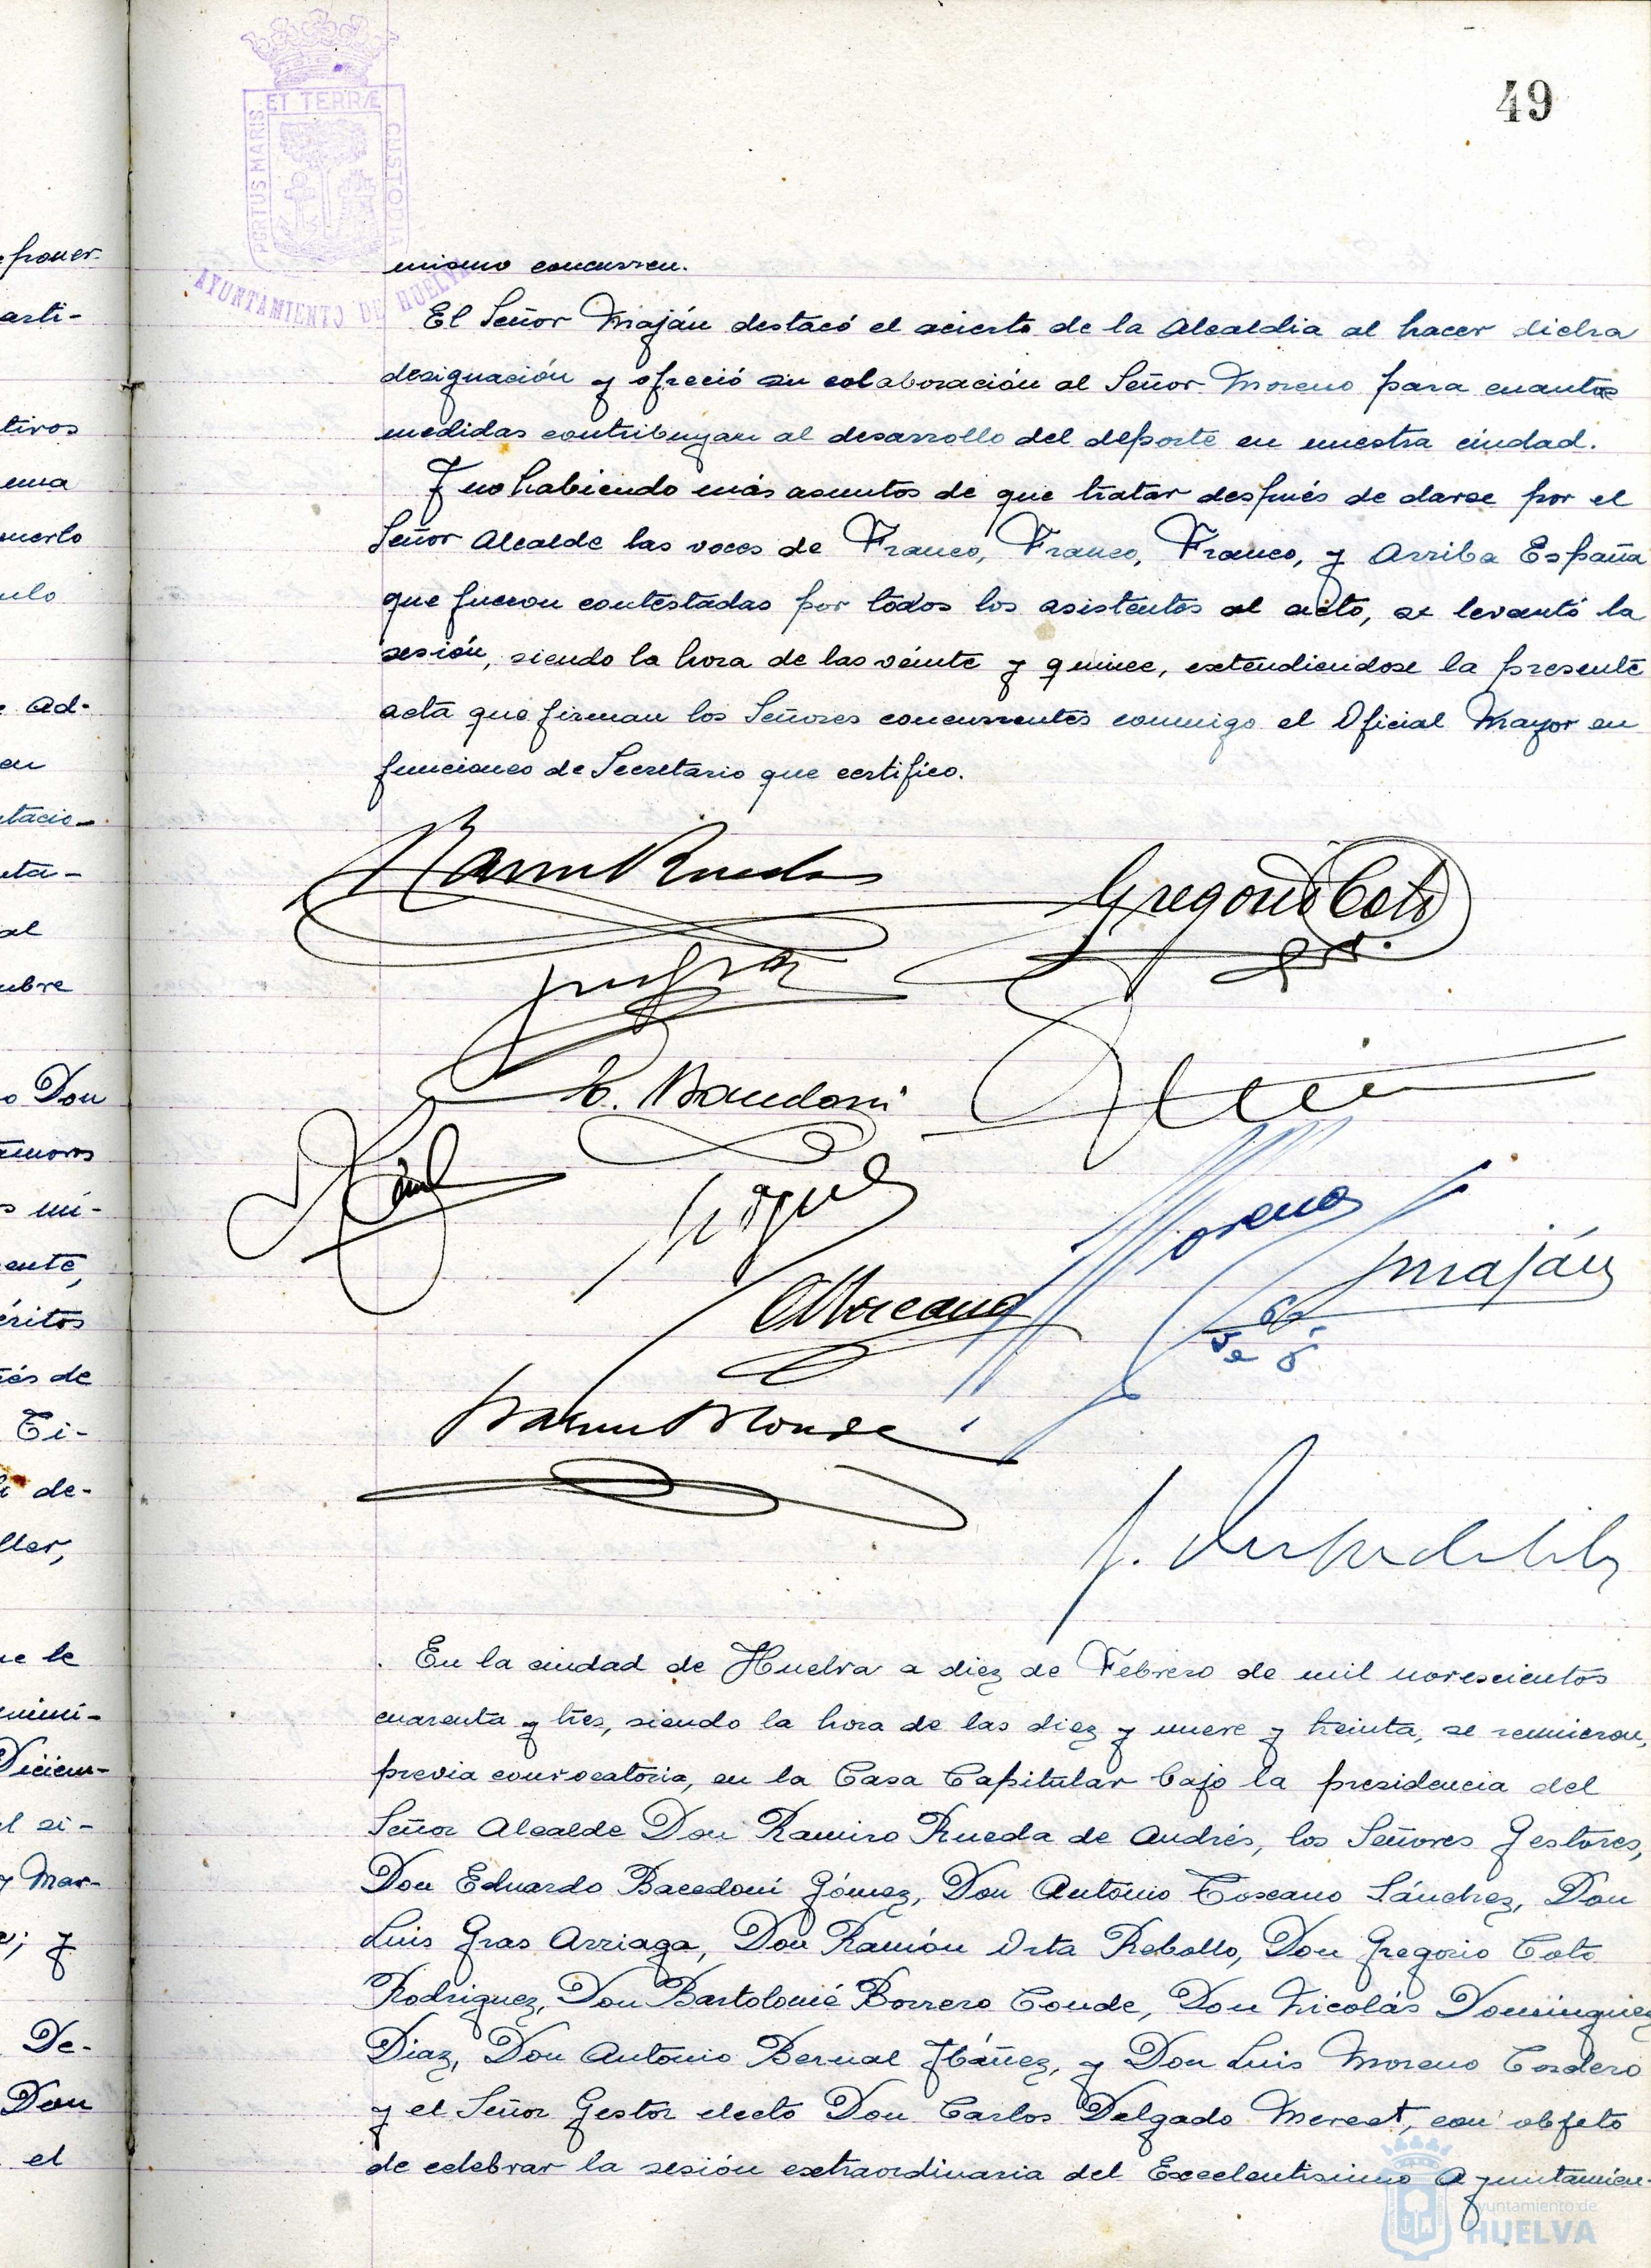 49
PORTUS MARIS ET TERRÆ CUSTODIA
AYUNTAMIENTO DE HUELVA
mismo concurren.
El Señor Maján destacó el acierto de la Alcaldia al hacer dicha
designación y ofreció su colaboración al Señor Moreno para cuantas
medidas contribuyan al desarrollo del deporte en nuestra ciudad.
Y no habiendo más asuntos de que tratar después de darse por el
Señor Alcalde las voces de Franco, Franco, Franco, y Arriba España
que fueron contestadas por todos los asistentes al acto, se levantó la
sesión, siendo la hora de las veinte y quince, extendiendose la presente
acta que firman los Señores concurrentes conmigo el Oficial Mayor en
funciones de Secretario que certifico.
Ramiro Rueda
Gregorio Coto
Moreno
Maján
En la ciudad de Huelva a diez de Febrero de mil novescientos
cuarenta y tres, siendo la hora de las diez y nueve y treinta, se reunieron,
previa convocatoria, en la Casa Capitular bajo la presidencia del
Señor Alcalde Don Ramiro Rueda de Andrés, los Señores Gestores,
Don Eduardo Bacedoni Gómez, Don Antonio Toscano Sánchez, Don
Luis Gras Arriaga, Don Ramón Orta Rebollo, Don Gregorio Coto
Rodriguez, Don Bartolomé Borrero Conde, Don Nicolás Dominguez
Diaz, Don Antonio Bernal Ibáñez, y Don Luis Moreno Cordero
y el Señor Gestor electo Don Carlos Delgado Mercet, con objeto
de celebrar la sesión extraordinaria del Excelentisimo Ayuntamien-
Ayuntamiento de
HUELVA